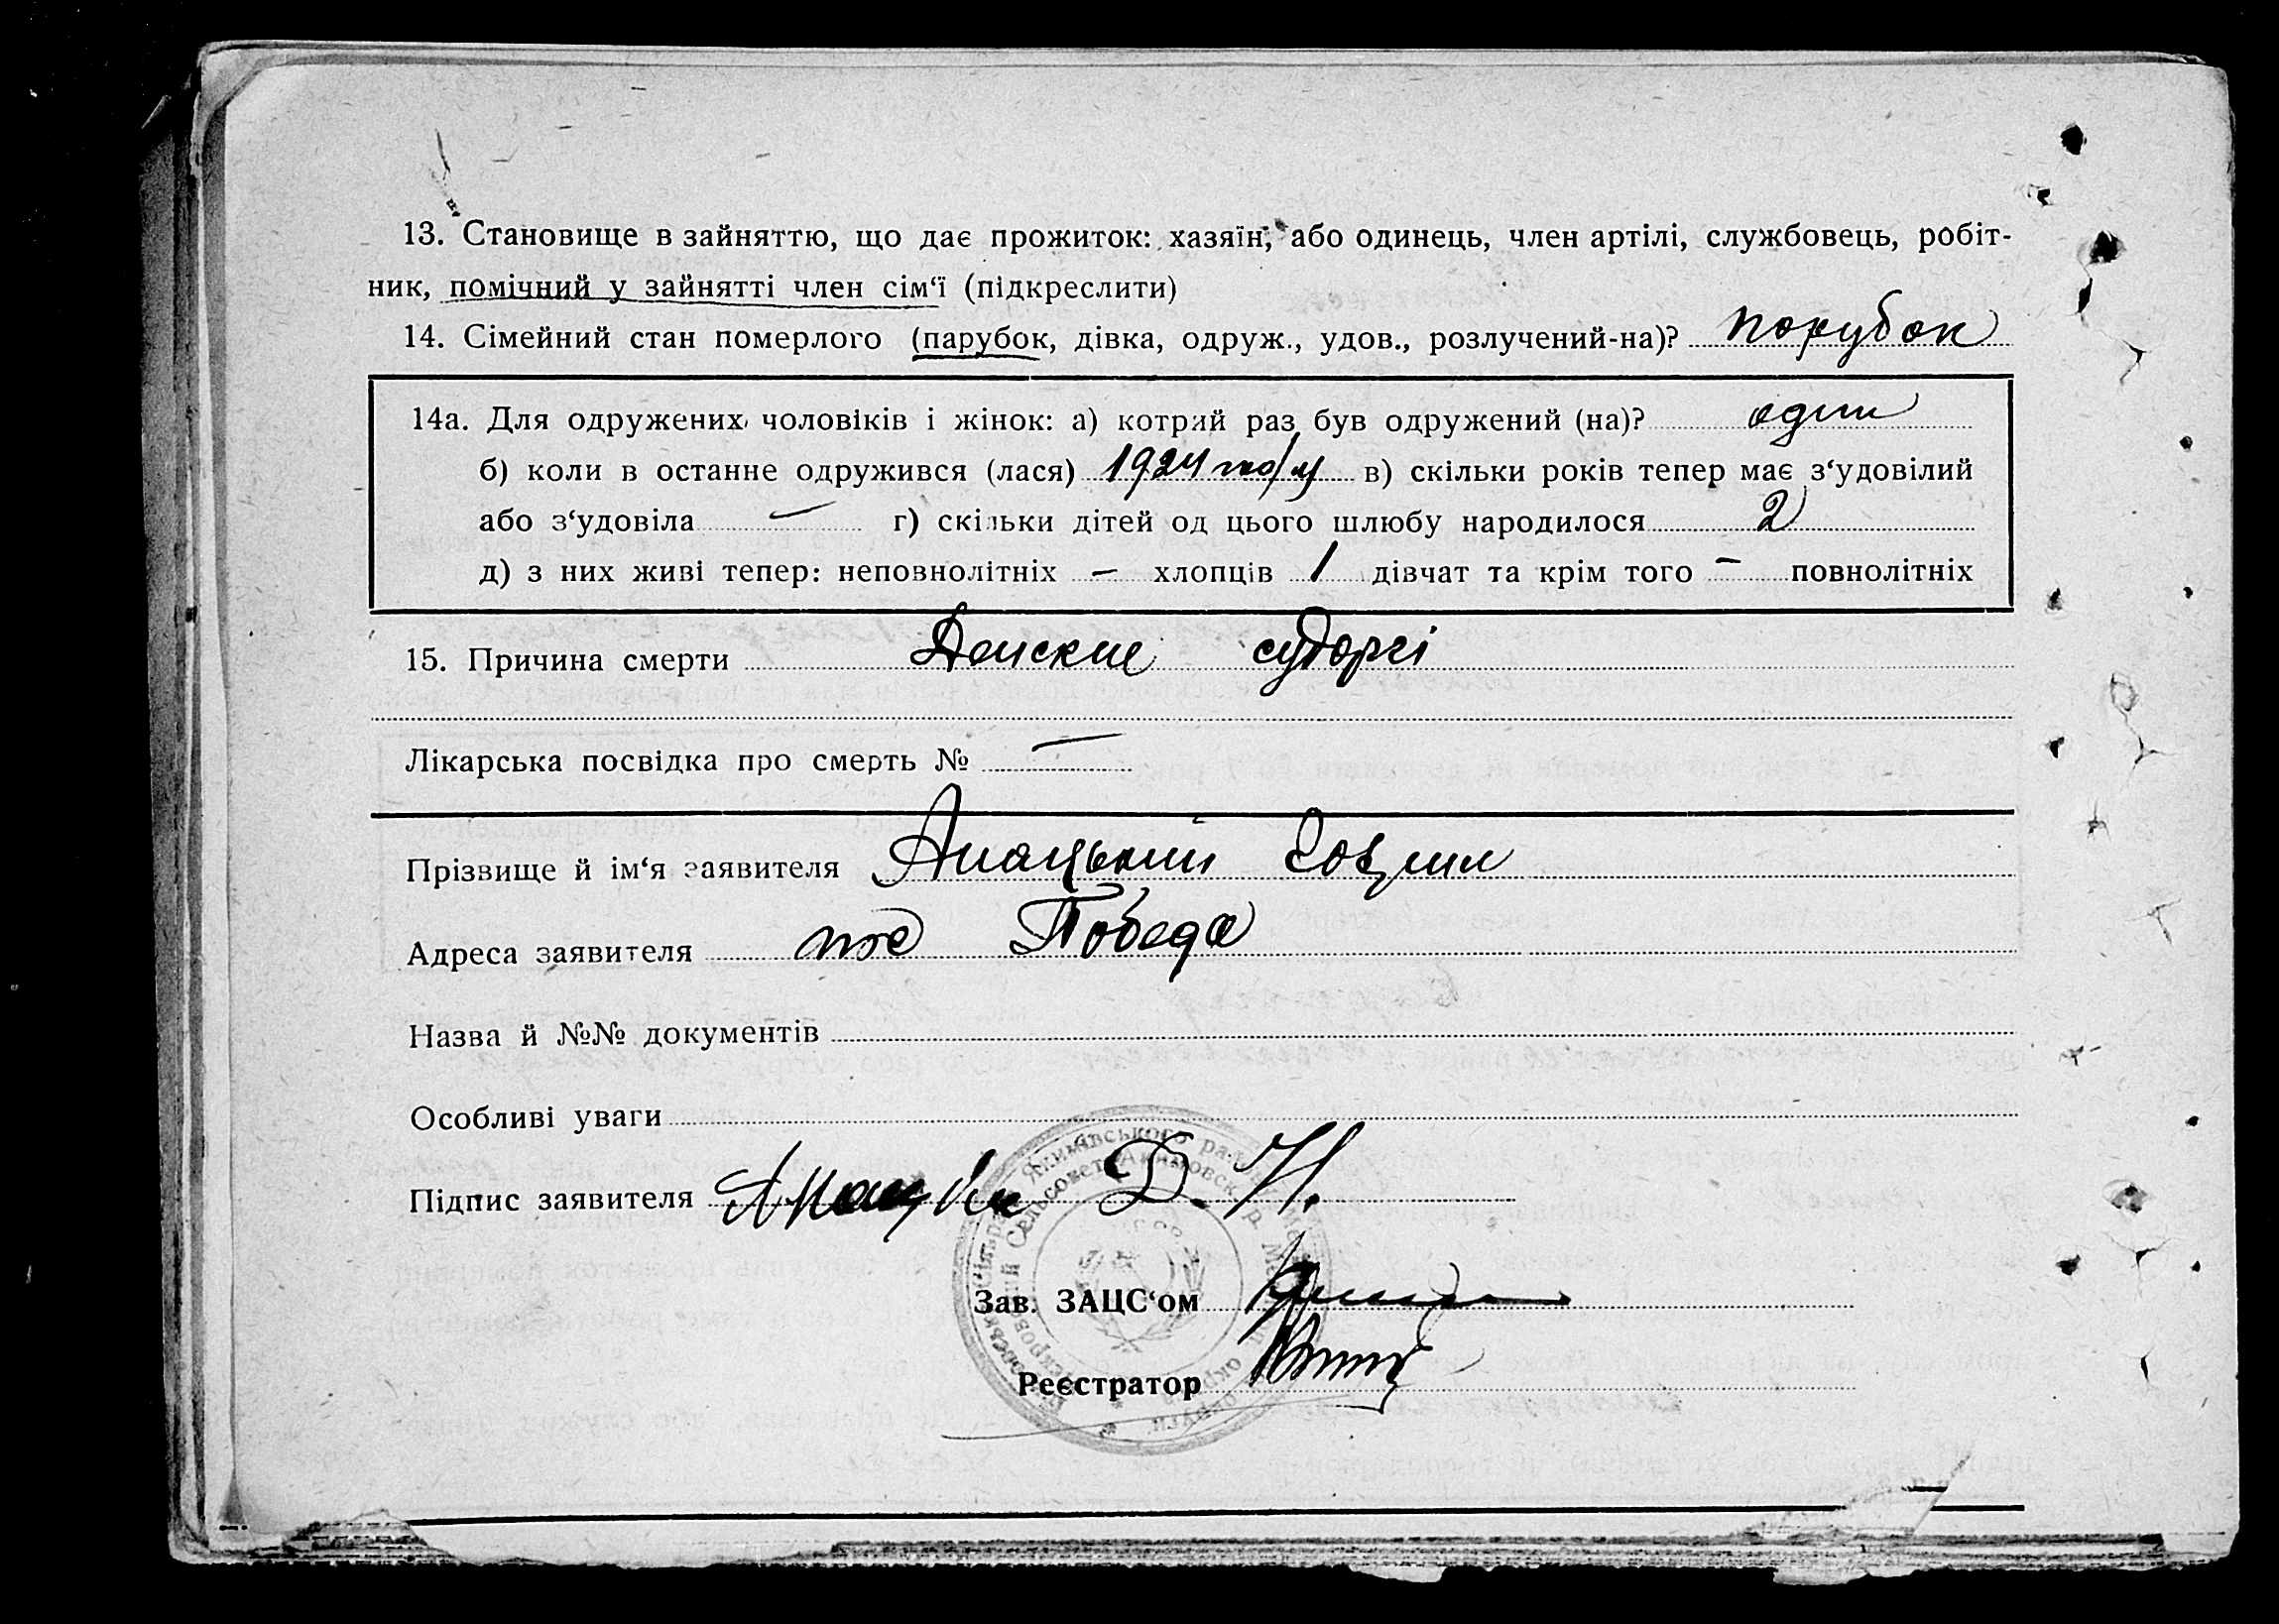 13. Становище в зайняттю, що дає прожиток: хазяїн, або одинець, член артілі, службовець, робіт-
ник, помічний у зайнятті член сім‘ї (підкреслити)
14. Сімейний стан померлого (парубок, дівка, одруж., удов., розлучений-на)? порубок
14а. Для одружених чоловіків і жінок: а) котрий раз був одружений (на)? один
б) коли в останне одружився (лася) 1924 году в) скільки років тепер має з‘удовілий
або з‘удовіла — г) скільки дітей од цього шлюбу народилося 2
д) з них живі тепер: неповнолітніх — хлопців 1 дівчат та крім того — повнолітніх
15. Причина смерти судоргі
Лікарська посвідка про смерть № —
Прізвище й ім‘я заявителя
Адреса заявителя пос Победа
Назва й №№ документів
Особливі уваги
Підпис заявителя Д. И.
Зав. ЗАЦС‘ом
Реєстратор